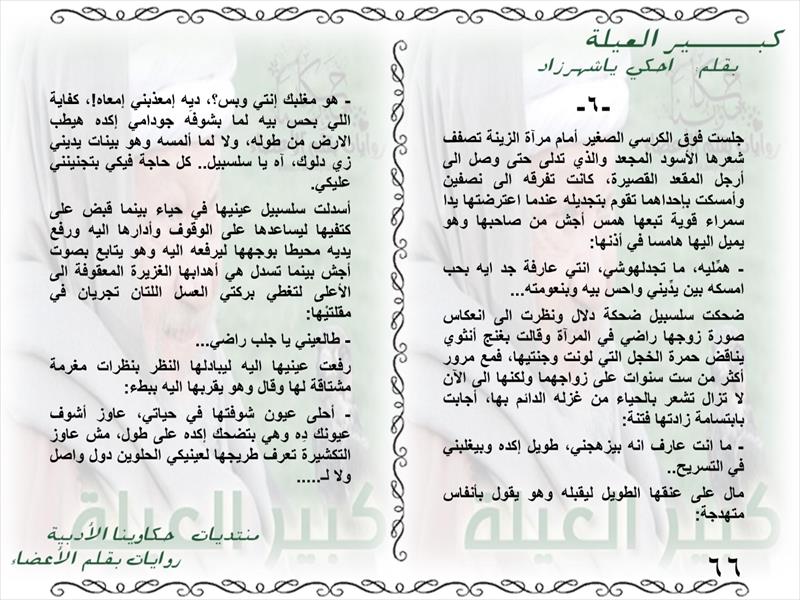 كبـــــــير العيلة
بقلم احكي ياشهرزاد
-٦-
جلست فوق الكرسي الصغير أمام مرآة الزينة تصفف
شعرها الأسود المجعد والذي تدلى حتى وصل الى
أرجل المقعد القصيرة، كانت تفرقه الى نصفين
وأمسكت بإحداهما تقوم بتجديله عندما اعترضتها يدا
سمراء قوية تبعها همس أجش من صاحبها وهو
يميل اليها هامسا في أذنها:
- همِّليه، ما تجدلهوشي، انتي عارفة جد ايه بحب
امسكه بين يدّيني واحس بيه وبنعومته...
ضحكت سلسبيل ضحكة دلال ونظرت الى انعكاس
صورة زوجها راضي في المرآة وقالت بغنج أنثوي
يناقض حمرة الخجل التي لونت وجنتيها، فمع مرور
أكثر من ست سنوات على زواجهما ولكنها الى الآن
لا تزال تشعر بالحياء من غزله الدائم بها، أجابت
بابتسامة زادتها فتنة:
- ما انت عارف انه بيزهجني، طويل إكده وبيغلبني
في التسريح..
مال على عنقها الطويل ليقبله وهو يقول بأنفاس
متهدجة:
- هو مغلبك إنتي وبس؟، ديه إمعذبني إمعاه!، كفاية
اللي بحس بيه لما بشوفه جودامي إكده هيطب
الارض من طوله، ولا لما ألمسه وهو بينات يديني
زي دلوك، آه يا سلسبيل.. كل حاجة فيكي بتجنينني
عليكي.
أسدلت سلسبيل عينيها في حياء بينما قبض على
كتفيها ليساعدها على الوقوف وأدارها اليه ورفع
يديه محيطا بوجهها ليرفعه اليه وهو يتابع بصوت
أجش بينما تسدل هي أهدابها الغزيرة المعقوفة الى
الأعلى لتغطي بركتي العسل اللتان تجريان في
مقلتيْها:
- طالعيني يا جلب راضي...
رفعت عينيها اليه ليبادلها النظر بنظرات مغرمة
مشتاقة لها وقال وهو يقربها اليه ببطء:
- أحلى عيون شوفتها في حياتي، عاوز أشوف
عيونك دِه وهي بتضحك إكده على طول، مش عاوز
التكشيرة تعرف طريجها لعينيكي الحلوين دول واصل
ولا لـ.....
كبير العيلة
كبير العيلة
منتديات حكاوينا الأدبية
روايات بقلم الأعضاء
٦٦